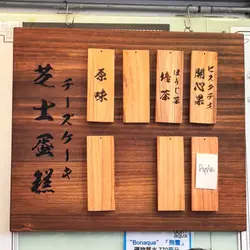 チーズケーキ
芝士蛋糕
ピスタチオ
開心果
ほうじ茶
焙茶
原味
"Bonaqua" 「飛雪」